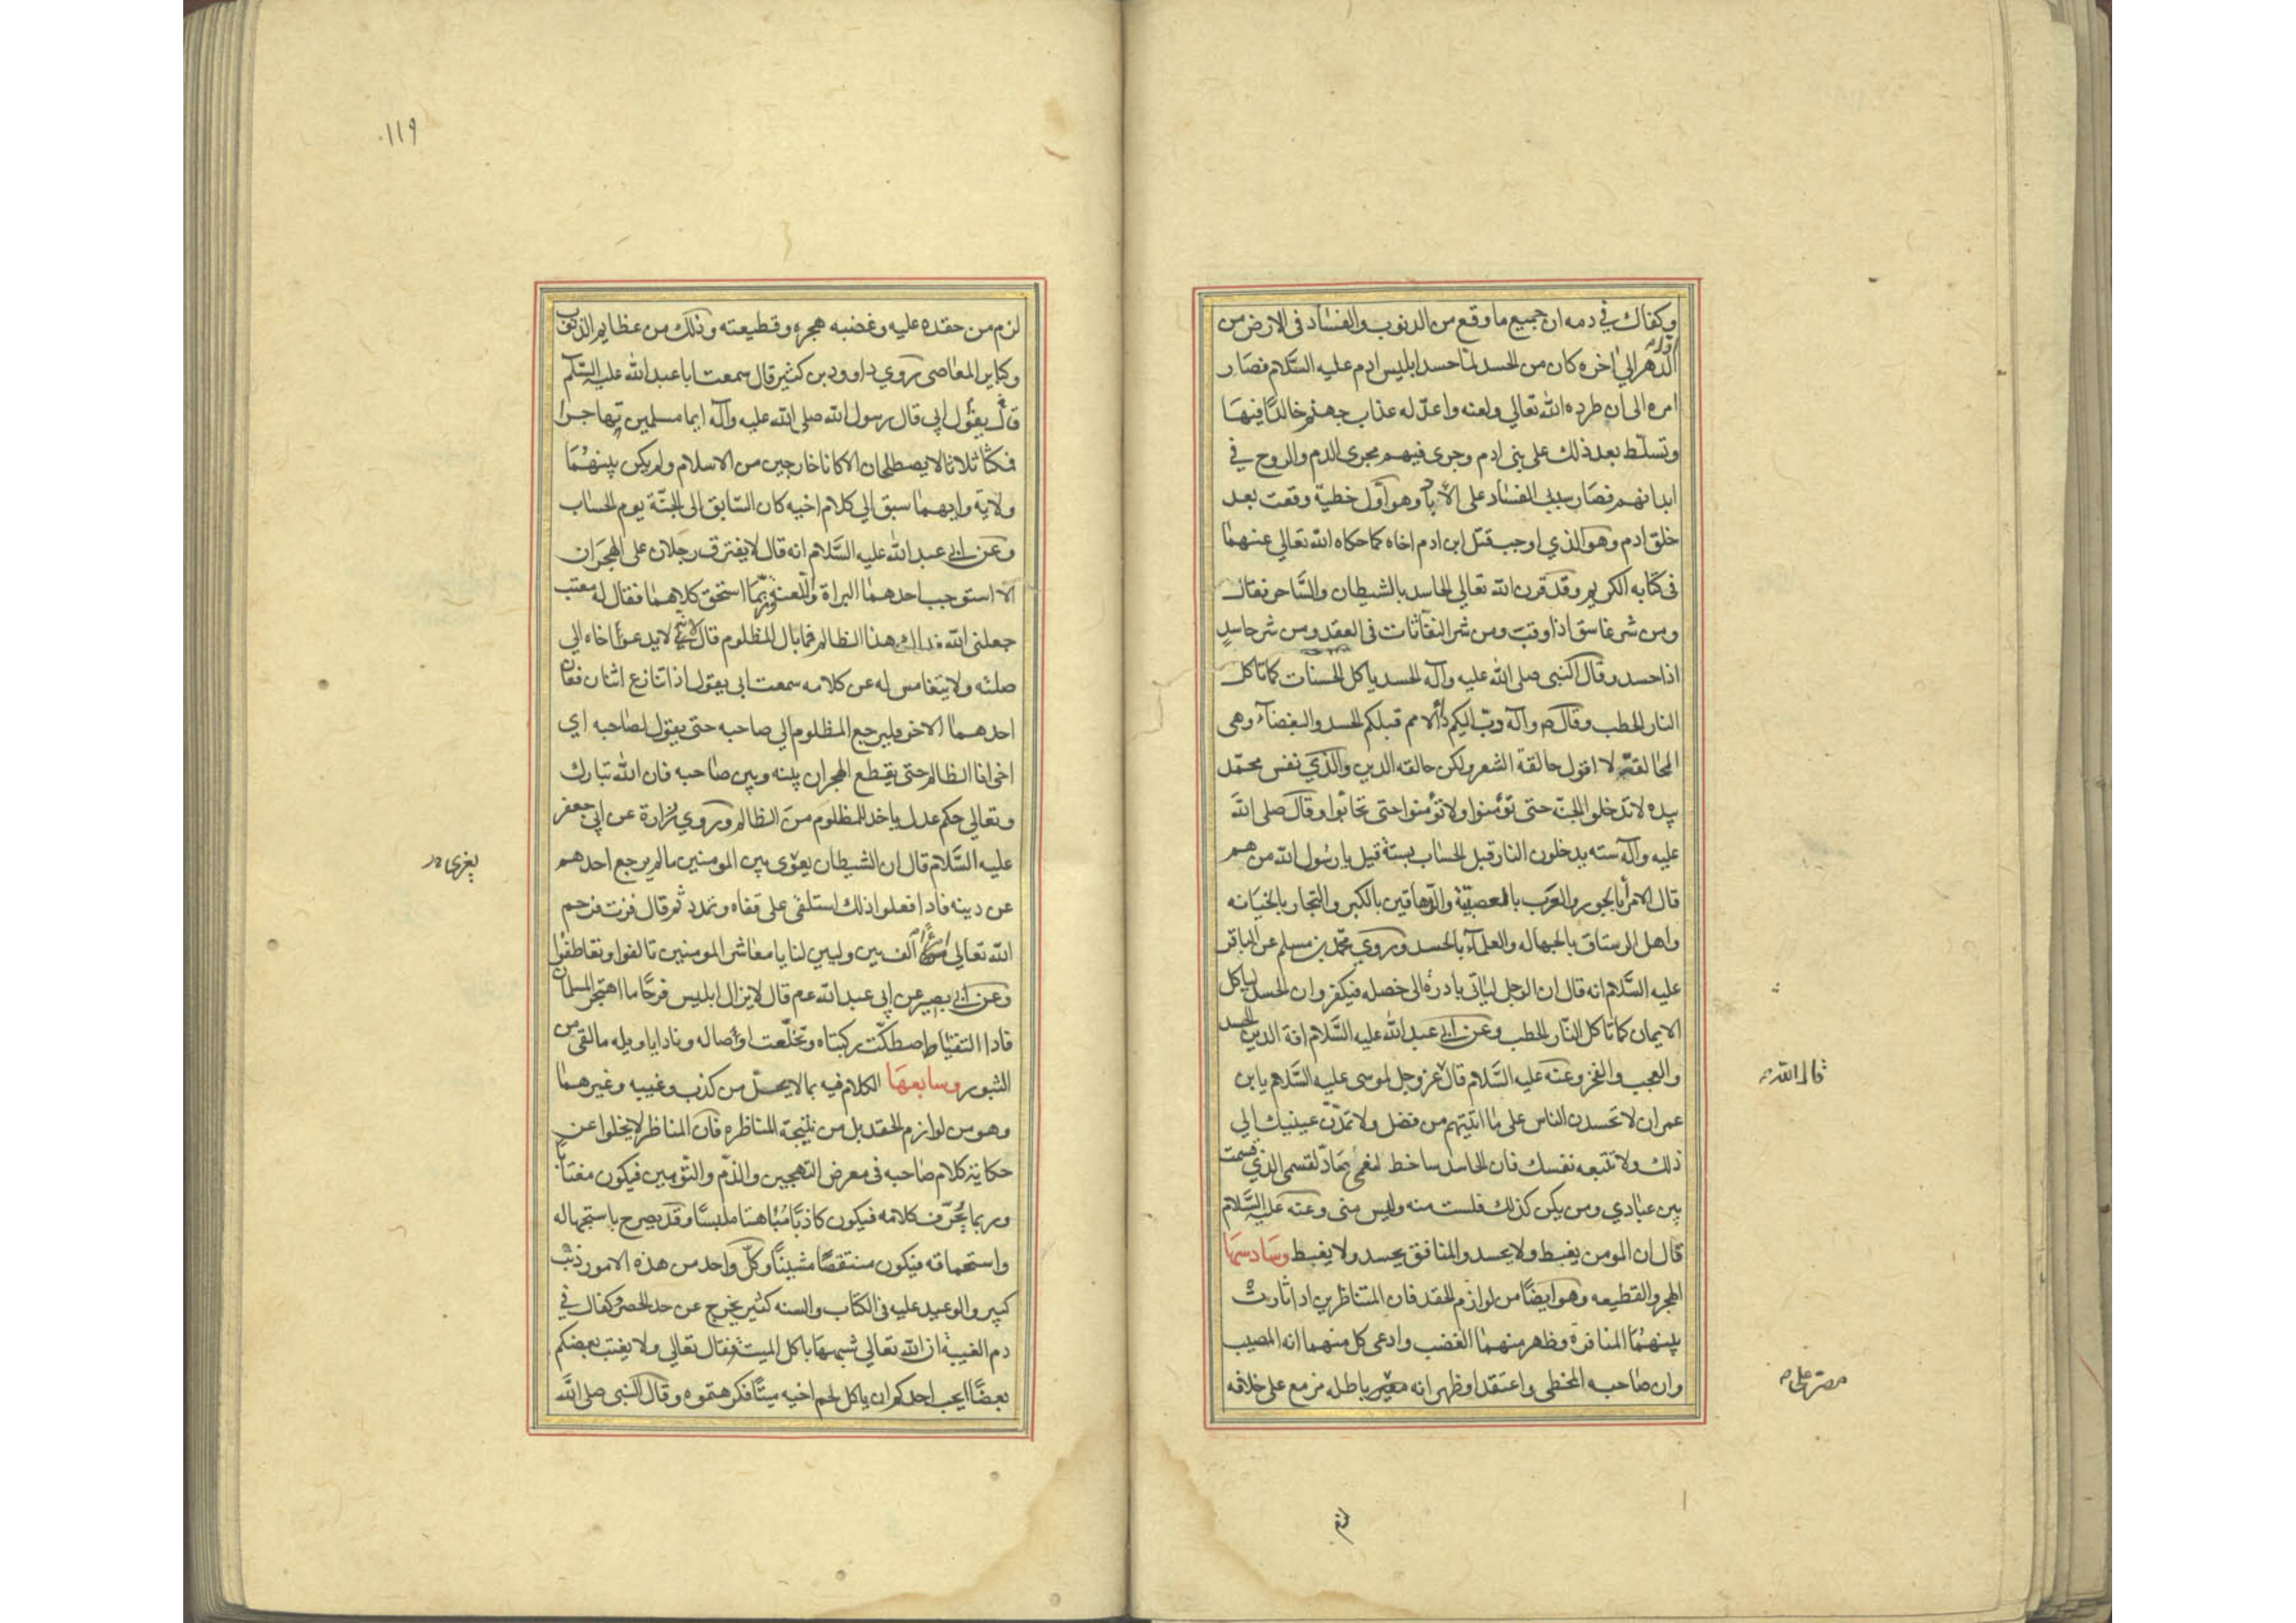 وكفاك في ذمه ان جميع ما وقع من الذنوب والفساد في الارض من
اوله
الدهر الي اخره كان من الحسد لما حسد ابليس ادم عليه السلام فصار
امره الى ان طرده الله تعالي ولعنه واعد له عذاب جهنم خالدا فيها
وتسلط بعد ذلك على بني ادم وجرى فيهم مجرى الدم والروح في
ابدانهم فصار سبب الفساد على الاباد وهو اول خطية وقعت بعد
خلق ادم وهو الذي اوجب قتل ابن ادم اخاه كما حكاه الله تعالي عنهما
في كتابه الكريم وقد قرن الله تعالي الحاسد بالشيطان والساحر فقال
ومن شر غاسق اذا وقب ومن شر النفاثات في العقد ومن شر حاسد
اذا حسد وقال النبي صلى الله عليه وآله الحسد ياكل الحسنات كما تاكل
النار الحطب وقال ص وآله دب اليكم داء الامم قبلكم الحسد والبغضاء وهى
الحالقة لا اقول حالقة الشعر ولكن حالقه الدين والذي نفس محمد
بيده لا تدخلوا الجنة حتى تؤمنوا ولا تؤمنوا حتى تحابوا وقال صلى الله
عليه وآله سته يدخلون النار قبل الحساب بستة قيل يا رسول الله من هم
قال الامرأ بالجور والعرب بالعصبية والدهاقين بالكبر والتجار بالخيانه
واهل الرستاق بالجهاله والعلمآء بالحسد وروي محمد بن مسلم عن الباقر
عليه السلام انه قال ان الرجل لياتي بادرة الى خصله فيكفر وان الحسد لياكل
الايمان كما تاكل النار الحطب وعن ابي عبد الله عليه السلام افة الدين الحسد
والعجب والفخر وعنه عليه السلام قال عز وجل لموسى عليه السلام يا بن
قال الله
عمران لا تحسدن الناس على ما اتيتهم من فضل ولا تمدن عينيك الي
ذلك ولا تتبعه نفسك فان الحاسد ساخط لنعمي صاد لقسمي الذي قسمت
بين عبادي ومن يكن كذلك فلست منه وليس مني وعنه عليه السلام
قال ان المومن يغبط ولا يحسد والمنافق يحسد ولا يغبط وسادسها
الهجر والقطيعه وهو ايضا من لوازم الحقد فان المتناظرين اذا ثارت
بينهما المنافرة وظهر منهما الغضب وادعى كل منهما انه المصيب
وان صاحبه المخطى واعتقد او ظهر انه باطله مزمع على خلافه
مصر على
لزم
١١٩
لزم من حقده عليه وغضبه هجره وقطيعته وذلك من عظايم الذنوب
وكباير المعاصى روي داوود بن كثير قال سمعت ابا عبد الله عليه السلم
قال يقول ابي قال رسول الله صلى الله عليه وآله ايما مسلمين تهاجرا
فمكثا ثلاثا لا يصطلحان الا كانا خارجين من الاسلام ولم يكن بينهما
ولاية وايهما سبق الي كلام اخيه كان السابق الى الجنة يوم الحساب
وعن ابي عبد الله عليه السلام انه قال لا يفترق رجلان على الهجران
الا استوجب احدهما البراة واللعنة وربما استحق كلاهما فقال له معتب
جعلني الله فداك هذا الظالم فما بال المظلوم قال لانه لا يدعو اخاه الي
صلته ولا يتغامس له عن كلامه سمعت ابي يقول اذا تنازع اثنان فعاز
احدهما الاخر فليرجع المظلوم الي صاحبه حتى يقول لصاحبه اي
اخي انا الظالم حتى يقطع الهجران بينه وبين صاحبه فان الله تبارك
وتعالي حكم عدل ياخذ للمظلوم من الظالم وروي زرارة عن ابي جعفر
عليه السلام قال ان الشيطان يغوى بين المومنين ما لم يرجع احدهم
يغرى
عن دينه فاذا فعلوا ذلك استلقى على قفاه وتمدد ثم قال فزت فرحم
الله تعالي امرءا الف بين وليين لنا يا معاشر المومنين تالفوا وتعاطفوا
وعن ابي بصير عن ابي عبد الله عم قال لا يزال ابليس فرحا ما اهتجر المسلمان
فاذا التقيا اصطكت ركبتاه وتخلعت اوصاله ونادا يا ويله ما لقى من
الثبور وسابعها الكلام فيه بما لا يحل من كذب وغيبه وغيرهما
وهو من لوازم الحقد بل من نتيجة المناظره فان المناظر لا يخلوا عن
حكاية كلام صاحبه في معرض التهجين والذم والتوهين فيكون مغتابا
وربما يحرف كلامه فيكون كاذبا مباهتا ملبسا وقد يصرح باستجهاله
واستحماقه فيكون منتقصا مشينا وكل واحد من هذه الامور ذنب
كبير والوعيد عليه في الكتاب والسنه كثير يخرج عن حد الحصر وكفاك في
ذم الغيبة ان الله تعالي شبهها باكل الميتة فقال تعالي ولا يغتب بعضكم
بعضا ايحب احدكم ان ياكل لحم اخيه ميتا فكرهتموه وقال النبي صلى الله